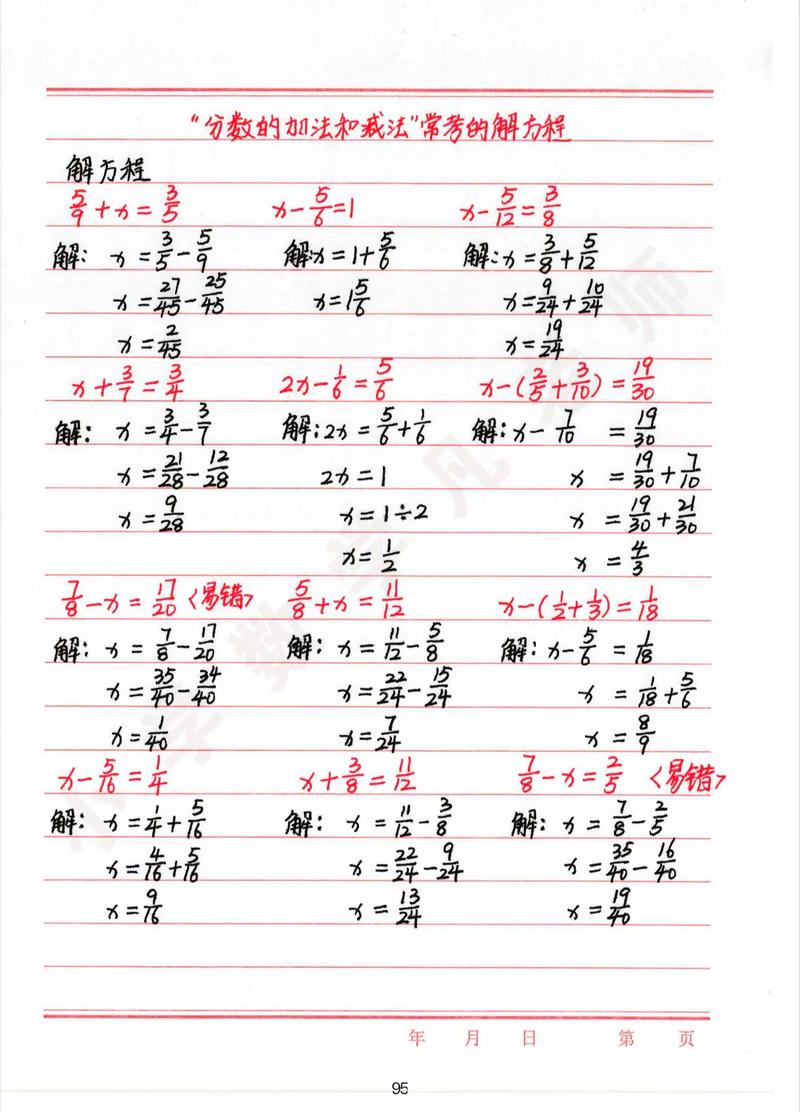 “分数的加法和减法”常考的解方程
解方程
5/9 + x = 3/5
解: x = 3/5 - 5/9
x = 27/45 - 25/45
x = 2/45
x - 5/6 = 1
解: x = 1 + 5/6
x = 1 5/6
x - 5/12 = 3/8
解: x = 3/8 + 5/12
x = 9/24 + 10/24
x = 19/24
x + 3/7 = 3/4
解: x = 3/4 - 3/7
x = 21/28 - 12/28
x = 9/28
2x - 1/6 = 5/6
解: 2x = 5/6 + 1/6
2x = 1
x = 1 ÷ 2
x = 1/2
x - (2/5 + 3/10) = 19/30
解: x - 7/10 = 19/30
x = 19/30 + 7/10
x = 19/30 + 21/30
x = 4/3
7/8 - x = 17/20 <易错>
解: x = 7/8 - 17/20
x = 35/40 - 34/40
x = 1/40
5/8 + x = 11/12
解: x = 11/12 - 5/8
x = 22/24 - 15/24
x = 7/24
x - (1/2 + 1/3) = 1/18
解: x - 5/6 = 1/18
x = 1/18 + 5/6
x = 8/9
x - 5/16 = 1/4
解: x = 1/4 + 5/16
x = 4/16 + 5/16
x = 9/16
x + 3/8 = 11/12
解: x = 11/12 - 3/8
x = 22/24 - 9/24
x = 13/24
7/8 - x = 2/5 <易错>
解: x = 7/8 - 2/5
x = 35/40 - 16/40
x = 19/40
年 月 日 第 页
95